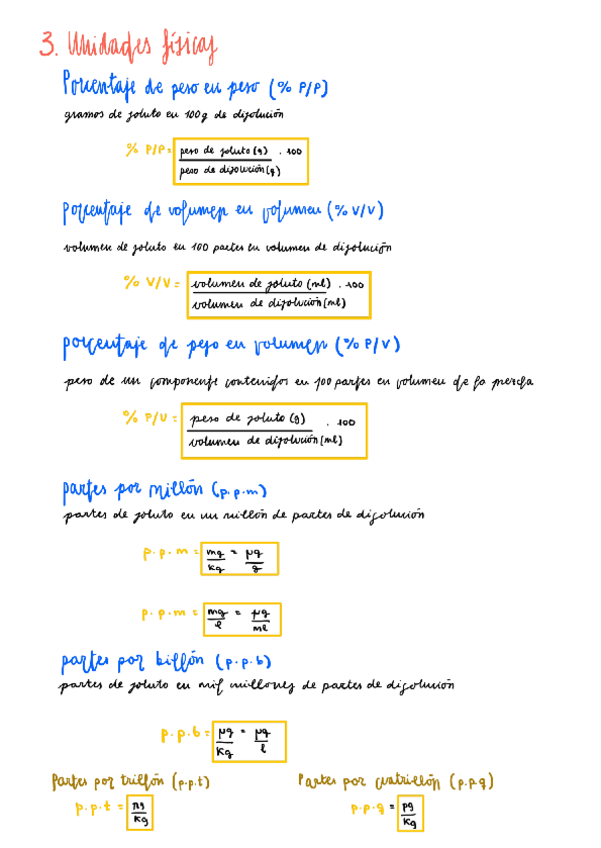 3. Unidades físicas
Porcentaje de peso en peso (% P/P)
gramos de soluto en 100g de disolución
% P/P = peso de soluto (g) . 100
peso de disolución (g)
porcentaje de volumen en volumen (% V/V)
volumen de soluto en 100 partes en volumen de disolución
% V/V = volumen de soluto (ml) . 100
volumen de disolución (ml)
porcentaje de peso en volumen (% P/V)
peso de un componente contenidos en 100 partes en volumen de la mezcla
% P/V = peso de soluto (g) . 100
volumen de disolución (ml)
partes por millón (p.p.m)
partes de soluto en un millón de partes de disolución
p.p.m = mg = μg
kg g
p.p.m = mg = μg
l ml
partes por billón (p.p.b)
partes de soluto en mil millones de partes de disolución
p.p.b = μg = μg
kg l
Partes por trillón (p.p.t) Partes por cuatrillón (p.p.q)
p.p.t = ng p.p.q = pg
kg kg